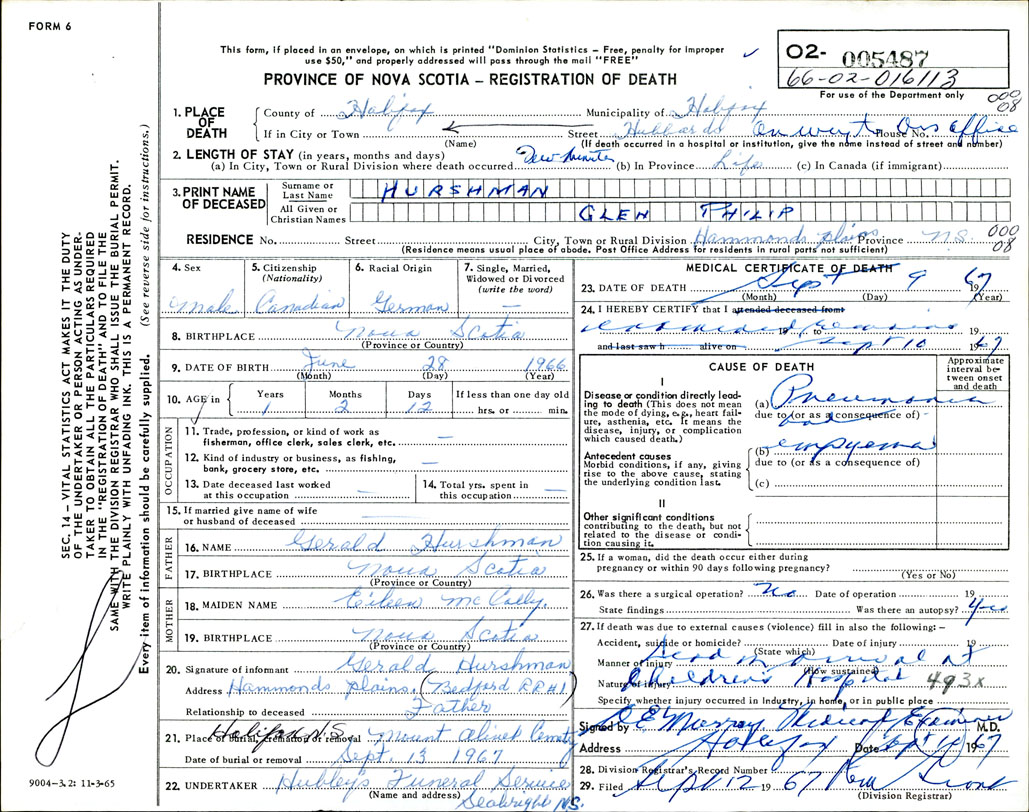 FORM 6
This form, if placed in an envelope, on which is printed "Dominion Statistics – Free, penalty for improper
use $50," and properly addressed will pass through the mail "FREE"
PROVINCE OF NOVA SCOTIA – REGISTRATION OF DEATH
02- 005487
66-02-016113
For use of the Department only
000
08
1. PLACE OF DEATH
County of Halifax Municipality of Halifax
If in City or Town Street Hubbards On way to Drs office House No.
(Name) (If death occurred in a hospital or institution, give the name instead of street and number)
2. LENGTH OF STAY (in years, months and days)
(a) In City, Town or Rural Division where death occurred Few minutes (b) In Province Life (c) In Canada (if immigrant)
3. PRINT NAME OF DECEASED
Surname or Last Name HURSHMAN
All Given or Christian Names GLEN PHILIP
RESIDENCE No. Street City, Town or Rural Division Hammonds plains Province N.S.
000
08
(Residence means usual place of abode. Post Office Address for residents in rural parts not sufficient)
4. Sex
Male
5. Citizenship
(Nationality)
Canadian
6. Racial Origin
German
7. Single, Married,
Widowed or Divorced
(write the word)
—
8. BIRTHPLACE Nova Scotia
(Province or Country)
9. DATE OF BIRTH June 28 1966
(Month) (Day) (Year)
10. AGE in Years Months Days If less than one day old
1 2 12 hrs. or min.
OCCUPATION
11. Trade, profession, or kind of work as
fisherman, office clerk, sales clerk, etc. —
12. Kind of industry or business, as fishing,
bank, grocery store, etc. —
13. Date deceased last worked
at this occupation —
14. Total yrs. spent in
this occupation —
15. If married give name of wife
or husband of deceased —
FATHER
16. NAME Gerald Hurshman
17. BIRTHPLACE Nova Scotia
(Province or Country)
MOTHER
18. MAIDEN NAME Eileen
19. BIRTHPLACE Nova Scotia
(Province or Country)
20. Signature of informant Gerald Hurshman
Address Hammonds plains. (Bedford R.R.#1)
Relationship to deceased Father
Halifax N.S.
21. Place of burial, cremation or removal Mount
Date of burial or removal Sept. 13 1967
22. UNDERTAKER Hubley's Funeral Service
(Name and address) Seabright N.S.
MEDICAL CERTIFICATE OF DEATH
23. DATE OF DEATH Sept 9 1967
(Month) (Day) (Year)
24. I HEREBY CERTIFY that I attended deceased from
examined remains 19 to 19
and last saw h alive on Sept 10 1967
CAUSE OF DEATH
Approximate
interval be-
tween onset
and death
I
Disease or condition directly lead-
ing to death (This does not mean
the mode of dying, e.g., heart fail-
ure, asthenia, etc. It means the
disease, injury, or complication
which caused death.)
(a) Pneumonia
due to (or as a consequence of)
and
(b) empyema
due to (or as a consequence of)
(c)
Antecedent causes
Morbid conditions, if any, giving
rise to the above cause, stating
the underlying condition last.
II
Other significant conditions
contributing to the death, but not
related to the disease or condi-
tion causing it.
25. If a woman, did the death occur either during
pregnancy or within 90 days following pregnancy?
(Yes or No)
26. Was there a surgical operation? No Date of operation 19
State findings Was there an autopsy? Yes
27. If death was due to external causes (violence) fill in also the following: –
Accident, suicide or homicide? Date of injury 19
(State which)
Dead on arrival at
Manner of injury
(How sustained)
Nature of injury Children's Hospital 493x
Specify whether injury occurred in Industry, in home, or in public place
Signed by Murray Medical Examiner M.D.
Address Halifax Date Sept 1967
28. Division Registrar's Record Number
29. Filed Sept 12 1967
(Division Registrar)
SEC. 14 – VITAL STATISTICS ACT MAKES IT THE DUTY
OF THE UNDERTAKER OR PERSON ACTING AS UNDER-
TAKER TO OBTAIN ALL THE PARTICULARS REQUIRED
IN THE "REGISTRATION OF DEATH" AND TO FILE THE
SAME WITH THE DIVISION REGISTRAR WHO SHALL ISSUE THE BURIAL PERMIT.
WRITE PLAINLY WITH UNFADING INK. THIS IS A PERMANENT RECORD.
Every item of information should be carefully supplied. (See reverse side for instructions.)
9004–3.2: 11-3-65